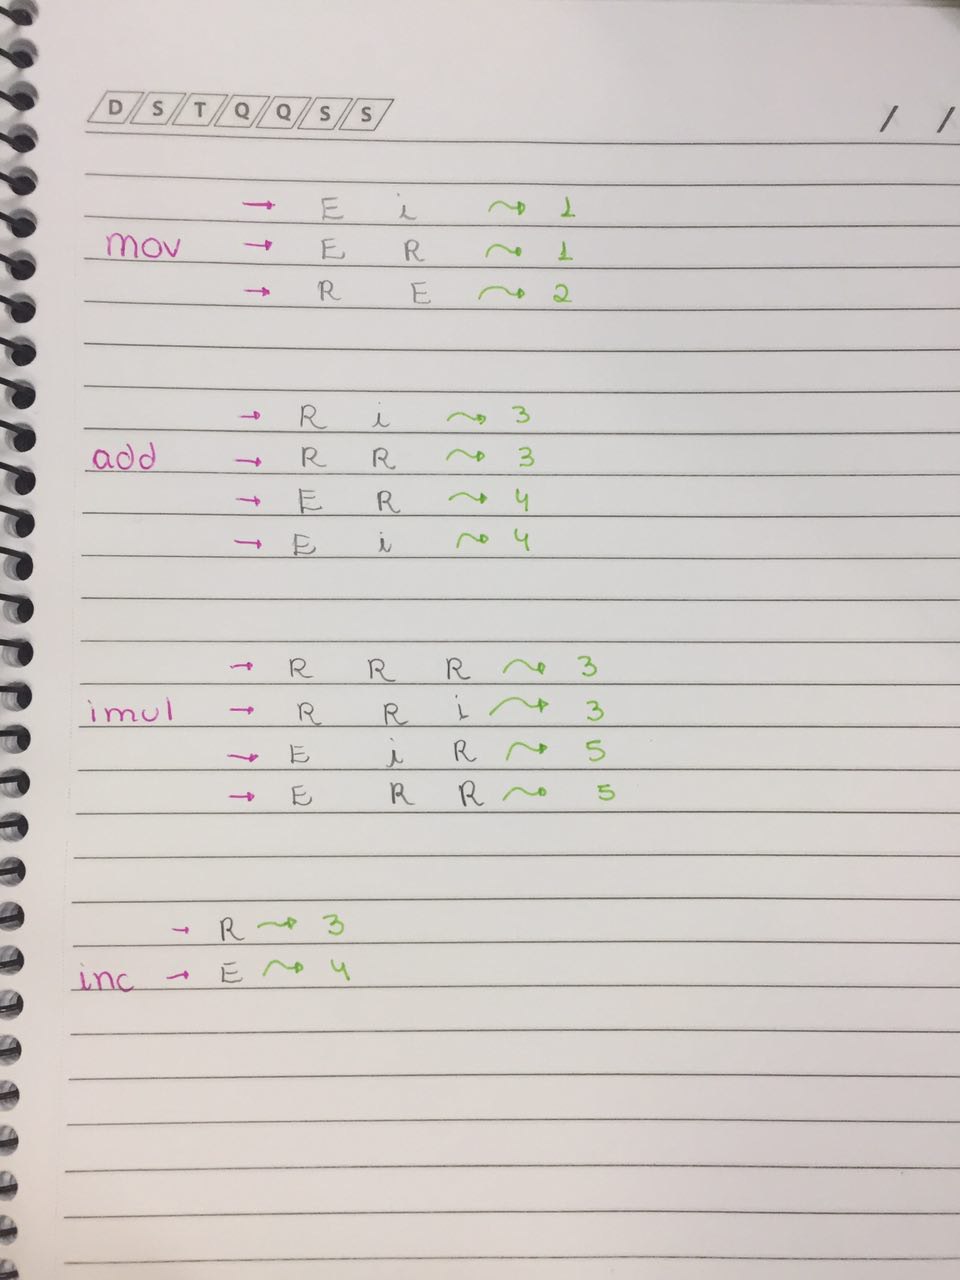 D S T Q Q S S / /
→ E i ⤳ 1
mov → E R ⤳ 1
→ R E ⤳ 2
→ R i ⤳ 3
add → R R ⤳ 3
→ E R ⤳ 4
→ E i ⤳ 4
→ R R R ⤳ 3
imul → R R i ⤳ 3
→ E i R ⤳ 5
→ E R R ⤳ 5
→ R ⤳ 3
inc → E ⤳ 4